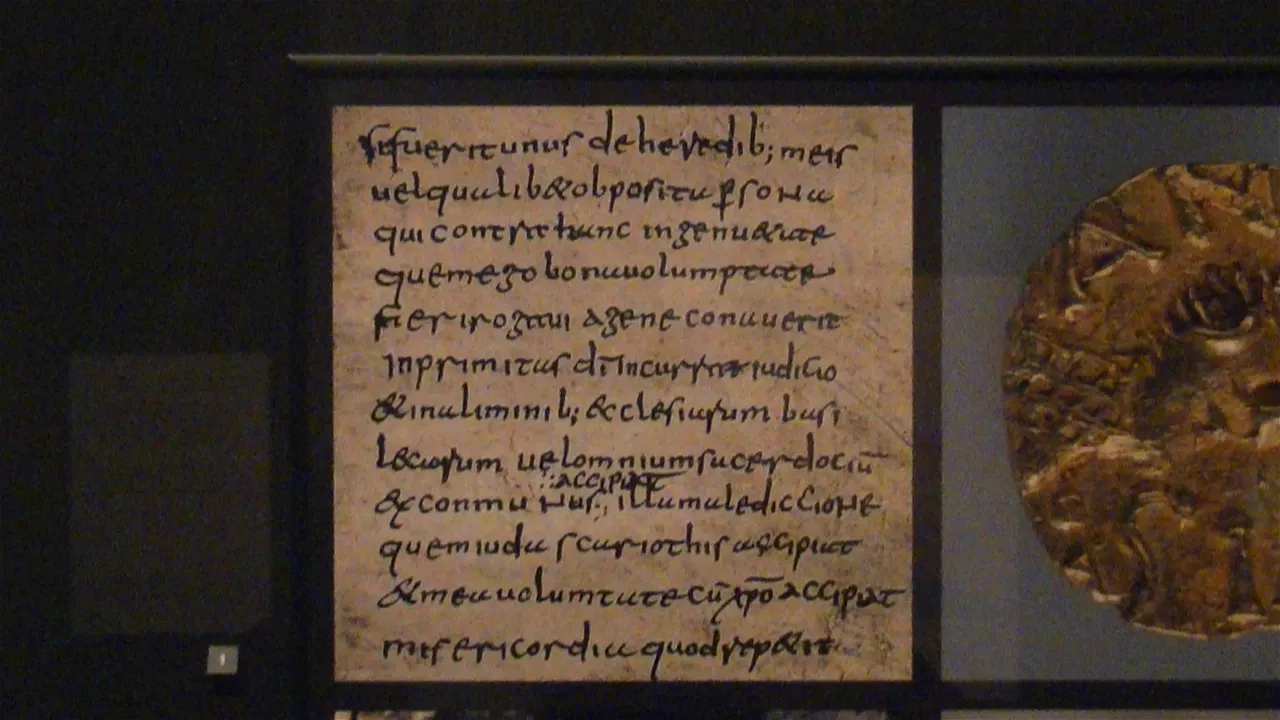 si fuerit unus de heredib; meis
uel qualib& obposita ꝑsona
qui contra hanc ingenuitate
quem ego bona uolumptate
fieri rogaui agene conauerit
inprimitus dī incurrat iudicio
& in aliminib; ecclesiarum basi
lecarum uel omnium sacerdociū
excommunus
::accipiat
illa malediccione
quem iuda scariothis accipiat
& mea uolumtate cū xp̄o accipiat
misericordia quod rep&it
1